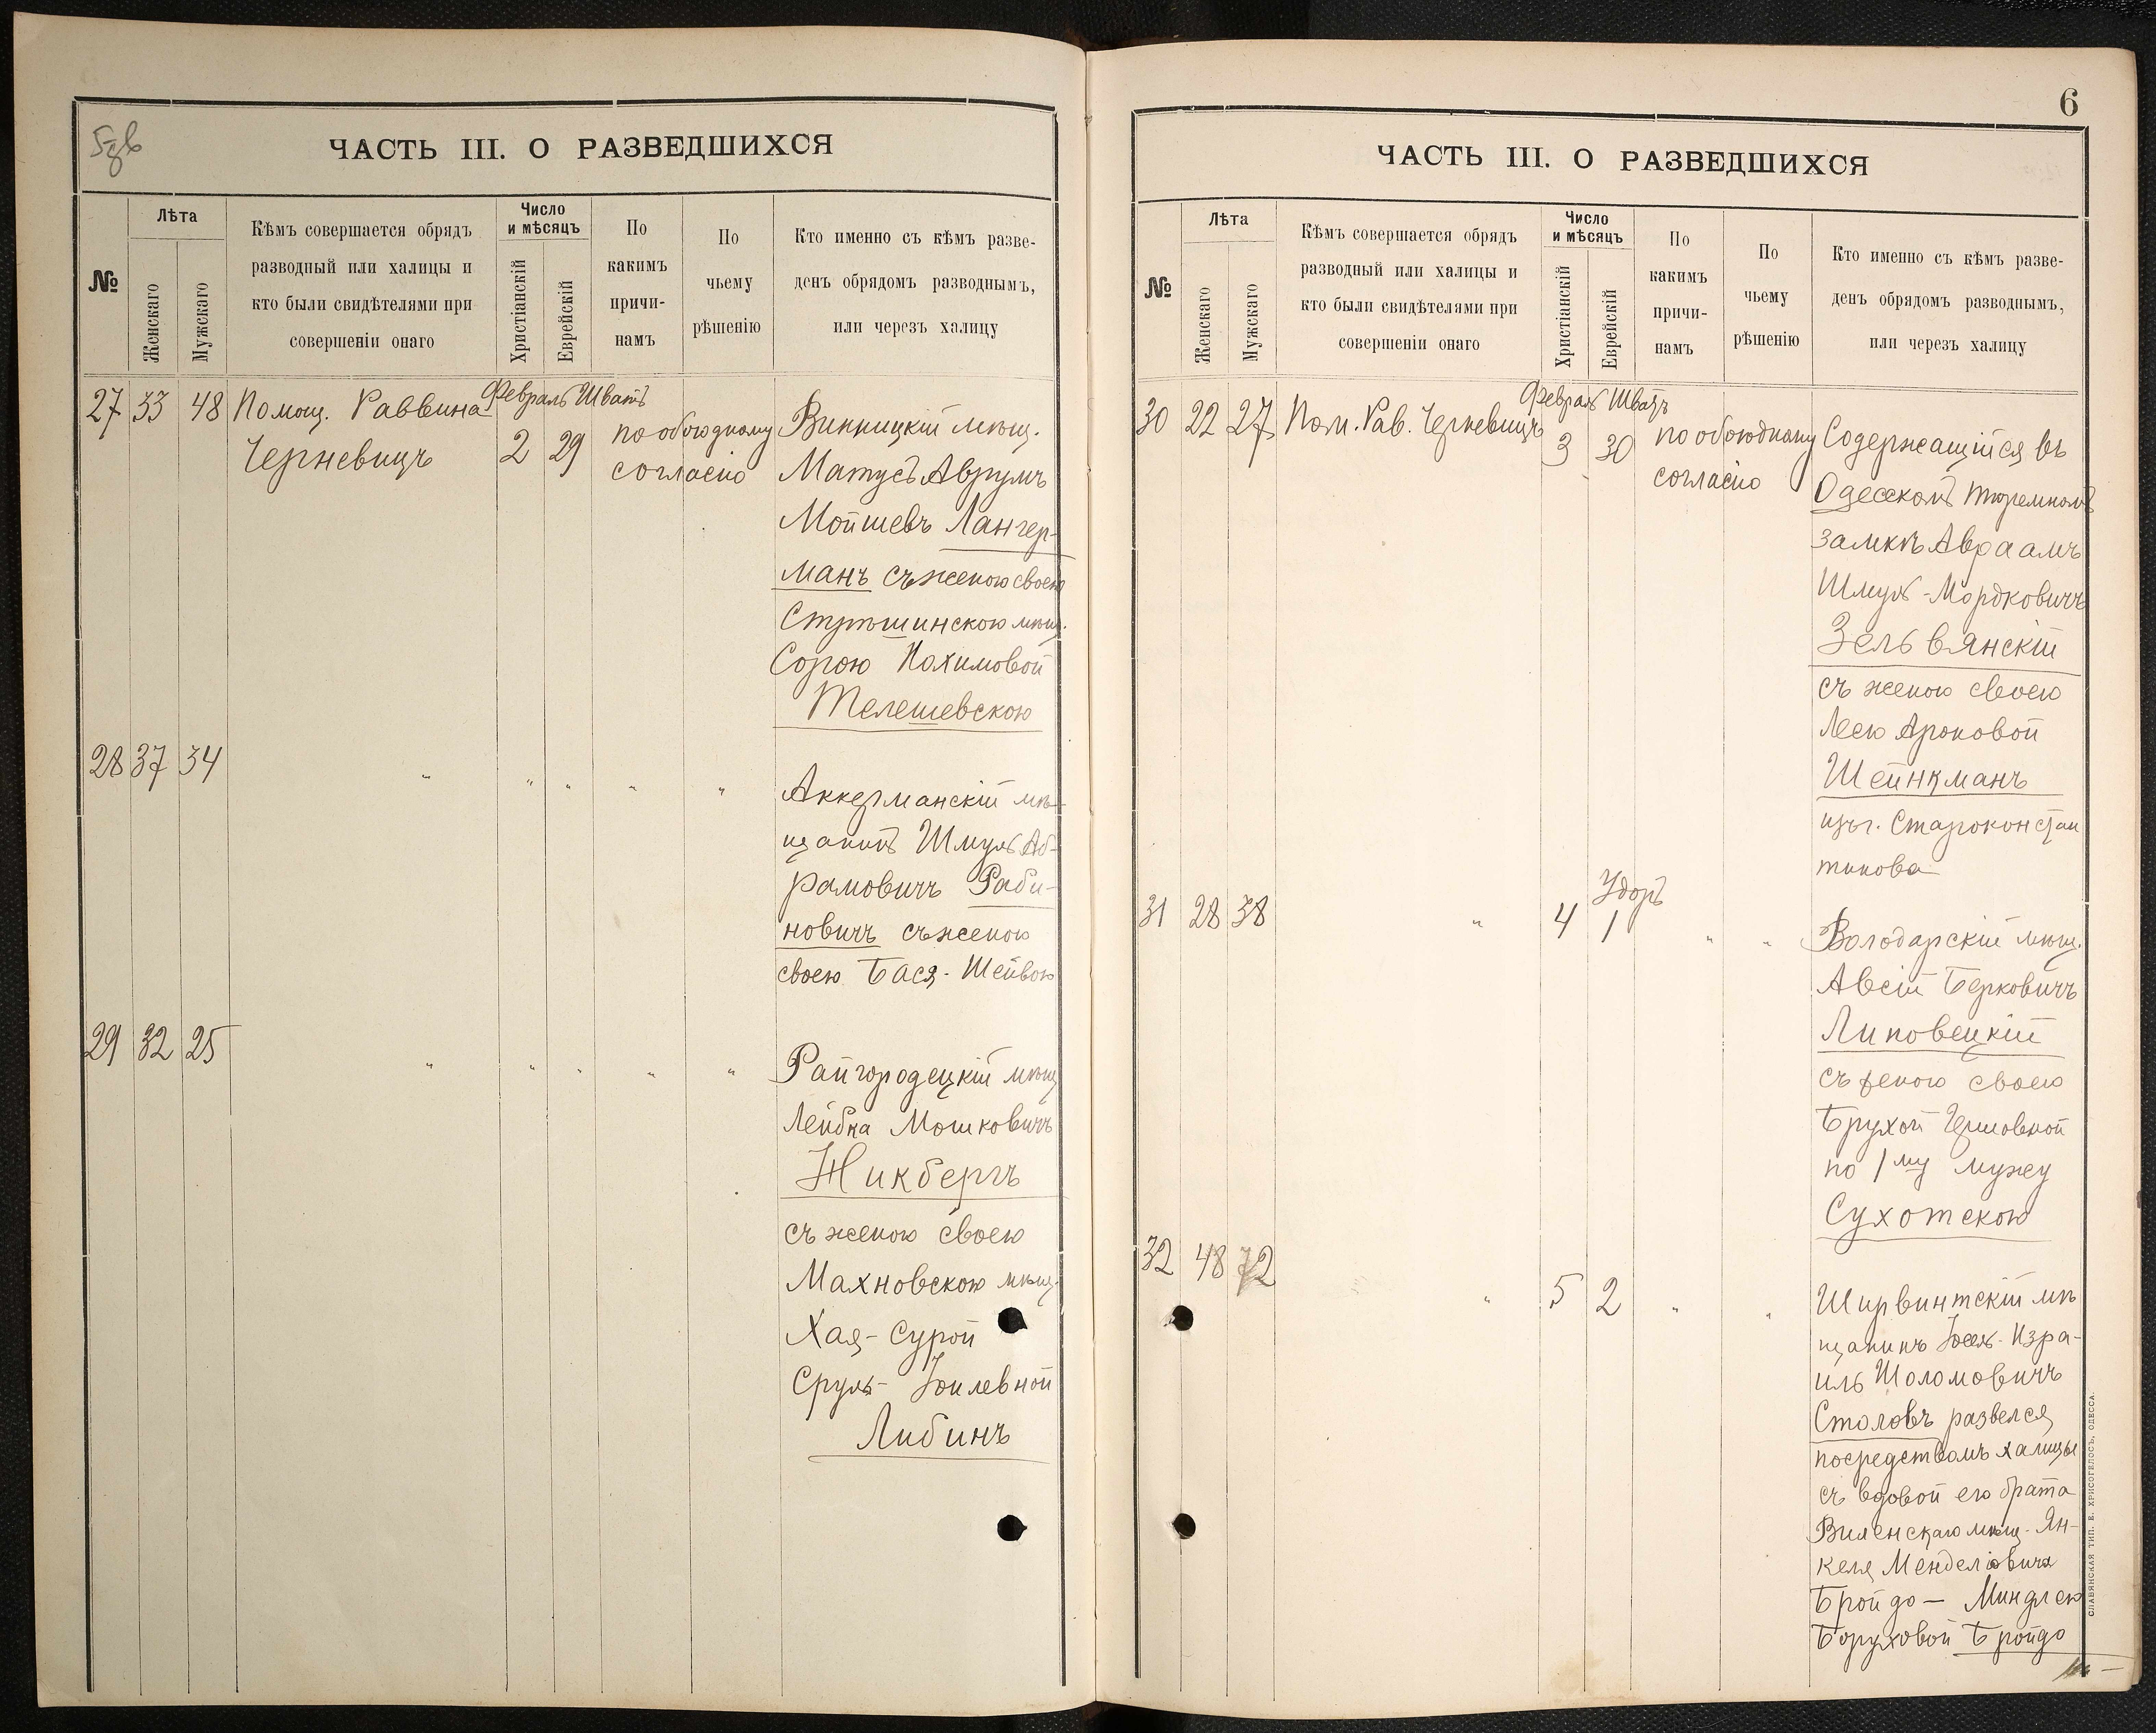 5 зв
ЧАСТЬ III. О РАЗВЕДШИХСЯ
№
Лѣта
Женскаго
Мужскаго
Кѣмъ совершается обрядъ
разводный или халицы и
кто были свидѣтелями при
совершеніи онаго
Число
и мѣсяцъ
Христіанскій
Еврейскій
По
какимъ
причи-
намъ
По
чьему
рѣшенію
Кто именно съ кѣмъ разве-
денъ обрядомъ разводнымъ,
или черезъ халицу
27 33 48 Помощ. Раввина
Черневицъ
Февраль Шватъ
2 29
по обоюдному
согласію
Винницкій мѣщ.
Матусъ Аврумъ
Мойшевъ Лангер-
манъ съ женою своею
Стрѣшинскою мѣщ.
Сорою Нохимовой
Телешевскою
28 37 34 " " " " "
Аккерманскій мѣ-
щанинъ Шмуль Аб-
рамовичъ Раби-
новичъ съ женою
своею Бася-Шейвою
29 32 25 " " " " "
Райгородецкій мѣщ
Лейбка Мошковичъ
Жикбергъ
съ женою своею
Махновскою мѣщ.
Хая-Сурой
Сруль-Іойлевной
Либинъ
6
ЧАСТЬ III. О РАЗВЕДШИХСЯ
№
Лѣта
Женскаго
Мужскаго
Кѣмъ совершается обрядъ
разводный или халицы и
кто были свидѣтелями при
совершеніи онаго
Число
и мѣсяцъ
Христіанскій
Еврейскій
По
какимъ
причи-
намъ
По
чьему
рѣшенію
Кто именно съ кѣмъ разве-
денъ обрядомъ разводнымъ,
или черезъ халицу
30 22 27 Пом. Рав. Черневицъ
Февраль Шватъ
3 30
по обоюдному
согласію
Содержащійся въ
Одесскомъ тюремномъ
замкѣ Авраамъ
Шмуль-Мордковичъ
Зельвянскій
съ женою своею
Леею Ароновой
Шейнкманъ
изъ г. Староконстан
тинова
Удоръ
31 28 38 " 4 1 " "
Володарскій мѣщ.
Авсій Берковичъ
Липовецкій
съ женою своею
Брухой Гершовной
по 1му мужу
Сухотскою
32 48 72 " 5 2 " "
Ширвинтскій мѣ
щанинъ Іосель-Изра-
иль Шоломовичъ
Столовъ развелся
посредствомъ халицы
съ вдовой его брата
Виленскаго мѣщ. Ян-
келя Менделіовича
Бройдо — Миндлею
Боруховой Бройдо
СЛАВЯНСКАЯ ТИП. Е. ХРИСОГЕЛОСЪ, ОДЕССА.